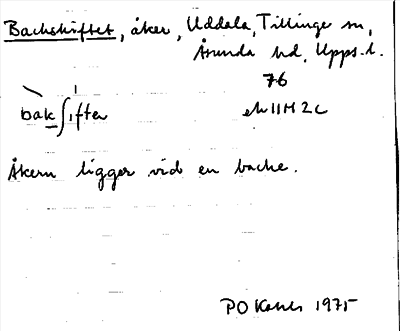 Backskiftet, åker, Uddala, Tillinge sn,
Åsunda hd, Upps. l.
76
bak ʃifter
ek 11H 2c
Åkern ligger vid en backe.
PO 1975